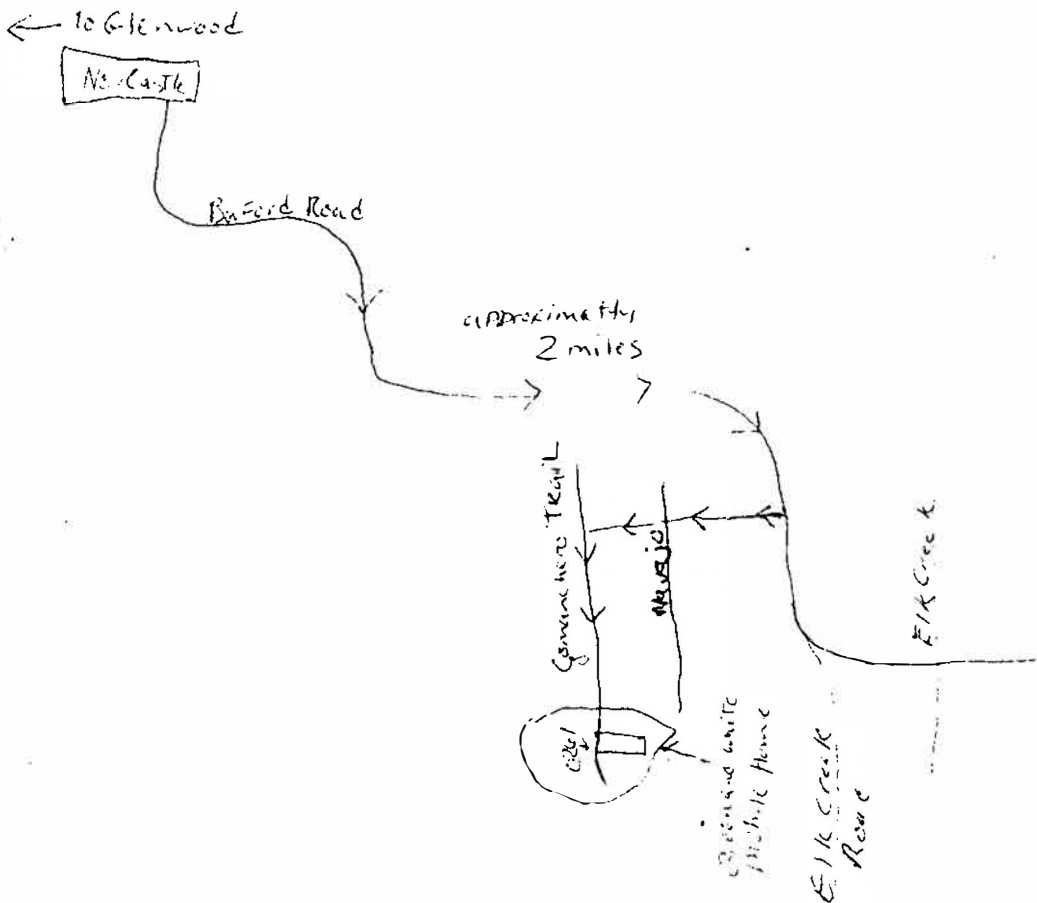 ← to Glenwood
New Castle
Buford Road
approximatly
2 miles
Comanchero Trail
Navajo
Elk Creek
and white
Mobile Home
Elk Creek
Road